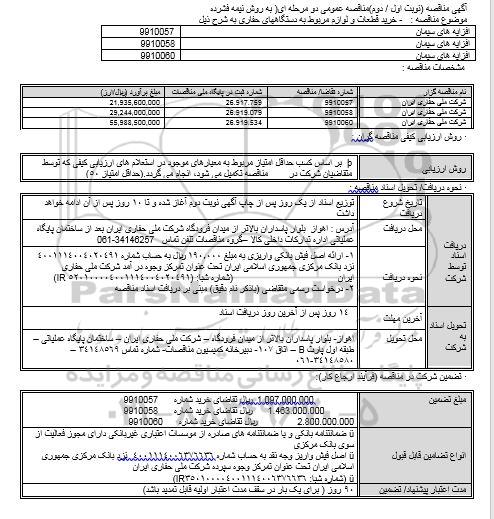 آگهی مناقصه (نوبت اول / دوم)مناقصه عمومی دو مرحله ای( به روش نیمه فشرده
موضوع مناقصه : - خرید قطعات و لوازم مربوط به دستگاههای حفاری به شرح ذیل
افزایه های سیمان 9910057
افزایه های سیمان 9910058
افزایه های سیمان 9910060
مشخصات مناقصه :
نام مناقصه گزار شماره تقاضا/ مناقصه شماره ثبت در پایگاه ملی مناقصات مبلغ برآورد (ریال/ارز)
شرکت ملی حفاری ایران 9910057 26.917.759 21,935,600,000
شرکت ملی حفاری ایران 9910058 26.919.079 29,244,000,000
شرکت ملی حفاری ایران 9910060 26.919.534 55,988,500,000
· روش ارزیابی کیفی مناقصه گران :
روش ارزیابی þ بر اساس کسب حداقل امتیاز مربوط به معیارهای موجود در استعلام های ارزیابی کیفی که توسط
متقاضیان شرکت در مناقصه تکمیل می شود، انجام می گردد.(حداقل امتیاز ۵۰)
· نحوه دریافت/ تحویل اسناد مناقصه :
دریافت اسناد توسط شرکت
تاریخ شروع دریافت توزیع اسناد از یک روز پس از چاپ آگهی نوبت دوم آغاز شده و تا ۱۰ روز پس از آن ادامه خواهد
داشت
محل دریافت آدرس : اهواز بلوار پاسداران بالاتر از میدان فرودگاه شرکت ملی حفاری ایران بعد از ساختمان پایگاه
عملیاتی اداره تدارکات داخلی کالا –گروه مناقصات تلفن تماس 34146257-061
نحوه دریافت ۱- ارائه اصل فیش بانکی واریزی به مبلغ ۱۹۰،۰۰۰ ریال به حساب شماره ۴۰۰۱۱۱۴۰۰۴۰۲۰۴۹۱
نزد بانک مرکزی جمهوری اسلامی ایران تحت عنوان تمرکز وجوه در آمد شرکت ملی حفاری
ایران (شماره شبا:
۲- درخواست رسمی متقاضی (باذکر نام دقیق) مبنی بر دریافت اسناد مناقصه
تحویل اسناد به شرکت
آخرین مهلت ۱۴ روز پس از آخرین روز دریافت اسناد
محل تحویل اهواز- بلوار پاسداران بالاتر از میدان فرودگاه – شرکت ملی حفاری ایران – ساختمان پایگاه عملیاتی –
طبقه اول پارت B – اتاق ۱۰۷- دبیرخانه کمیسیون مناقصات- شماره تماس ۳۴۱۴۸۵۶۹ –
۰۶۱-۳۴۱۴۸۵۸۰
· تضمین شرکت در مناقصه (فرآیند ارجاع کار):
مبلغ تضمین 1.097.000.000 ریال تقاضای خرید شماره 9910057
1.463.000.000 ریال تقاضای خرید شماره 9910058
2.800.000.000 ریال تقاضای خرید شماره 9910060
انواع تضامین قابل قبول ü ضمانتنامه بانکی و یا ضمانتنامه های صادره از موسسات اعتباری غیربانکی دارای مجوز فعالیت از
سوی بانک مرکزی
ü اصل فیش واریز وجه نقد به حساب شماره ۴۰۰۱۱۱۴۰۰۶۳۷۶۶۳۶ نزد بانک مرکزی جمهوری
اسلامی ایران تحت عنوان تمرکز وجوه سپرده شرکت ملی حفاری ایران
ü (شماره شبا:
مدت اعتبار پیشنهاد/ تضمین ۹۰ روز ( برای یک بار در سقف مدت اعتبار اولیه قابل تمدید باشد)